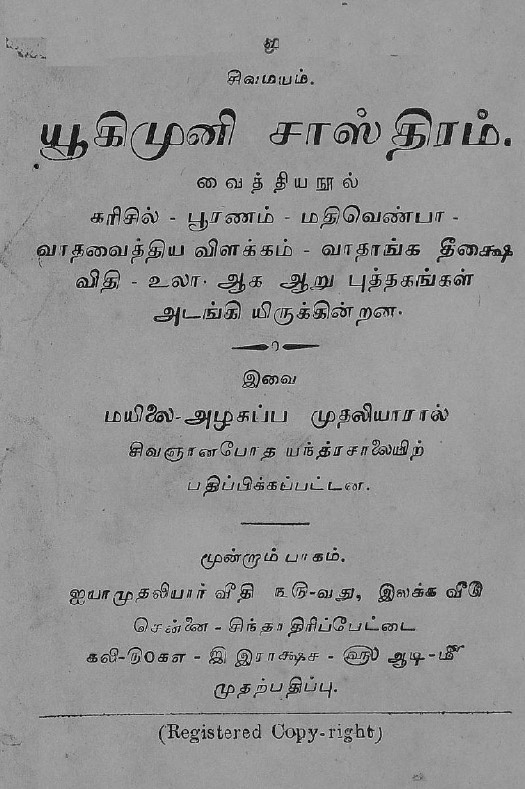 உ
சிவமயம்.
யூகிமுனி சாஸ்திரம்.
வைத்தியநூல்
கரிசில் - பூரணம் - மதிவெண்பா -
வாதவைத்திய விளக்கம் - வாதாங்க தீக்ஷை
விதி - உலா. ஆக ஆறு புத்தகங்கள்
அடங்கி யிருக்கின்றன.
இவை
மயிலை-அழகப்ப முதலியாரால்
சிவஞானபோத யந்த்ரசாலையிற்
பதிப்பிக்கப்பட்டன.
மூன்றாம் பாகம்.
ஐயாமுதலியார் வீதி ௩௫-வது, இலக்க வீடு
சென்னை - சிந்தாதிரிப்பேட்டை
கலி-௫0௧௭ - ௵ இராக்ஷச - ௵ ஆடி-௴
முதற்பதிப்பு.
(Registered Copy-right)